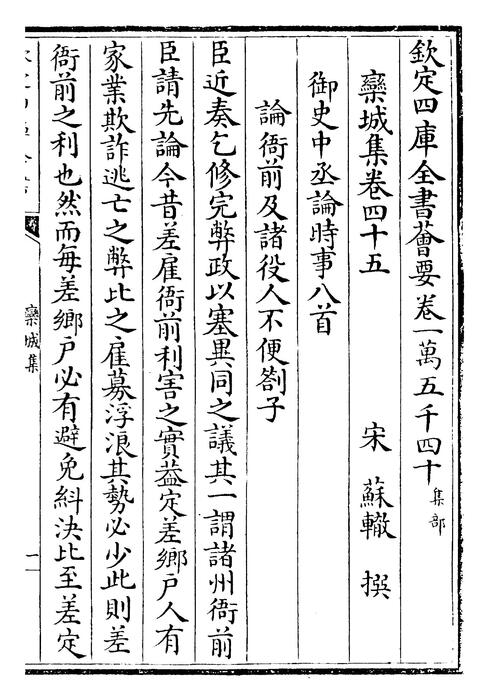 欽定四庫全書薈要卷一萬五千四十集部
欒城集卷四十五
宋蘇轍撰
御史中丞論時事八首
論衙前及諸役人不便劄子
臣近奏乞修完弊政以塞異同之議其一謂諸州衙前
臣請先論今昔差雇衙前利害之實葢定差鄉戶人有
家業欺詐逃亡之弊比之雇募浮浪其勢必少此則差
衙前之利也然而每差鄉戶必有避免糾決比至差定
欒城集
一